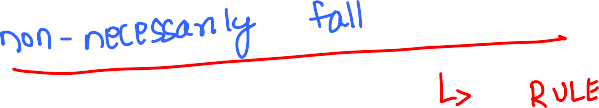 non-necessarily fall
↳ RULE